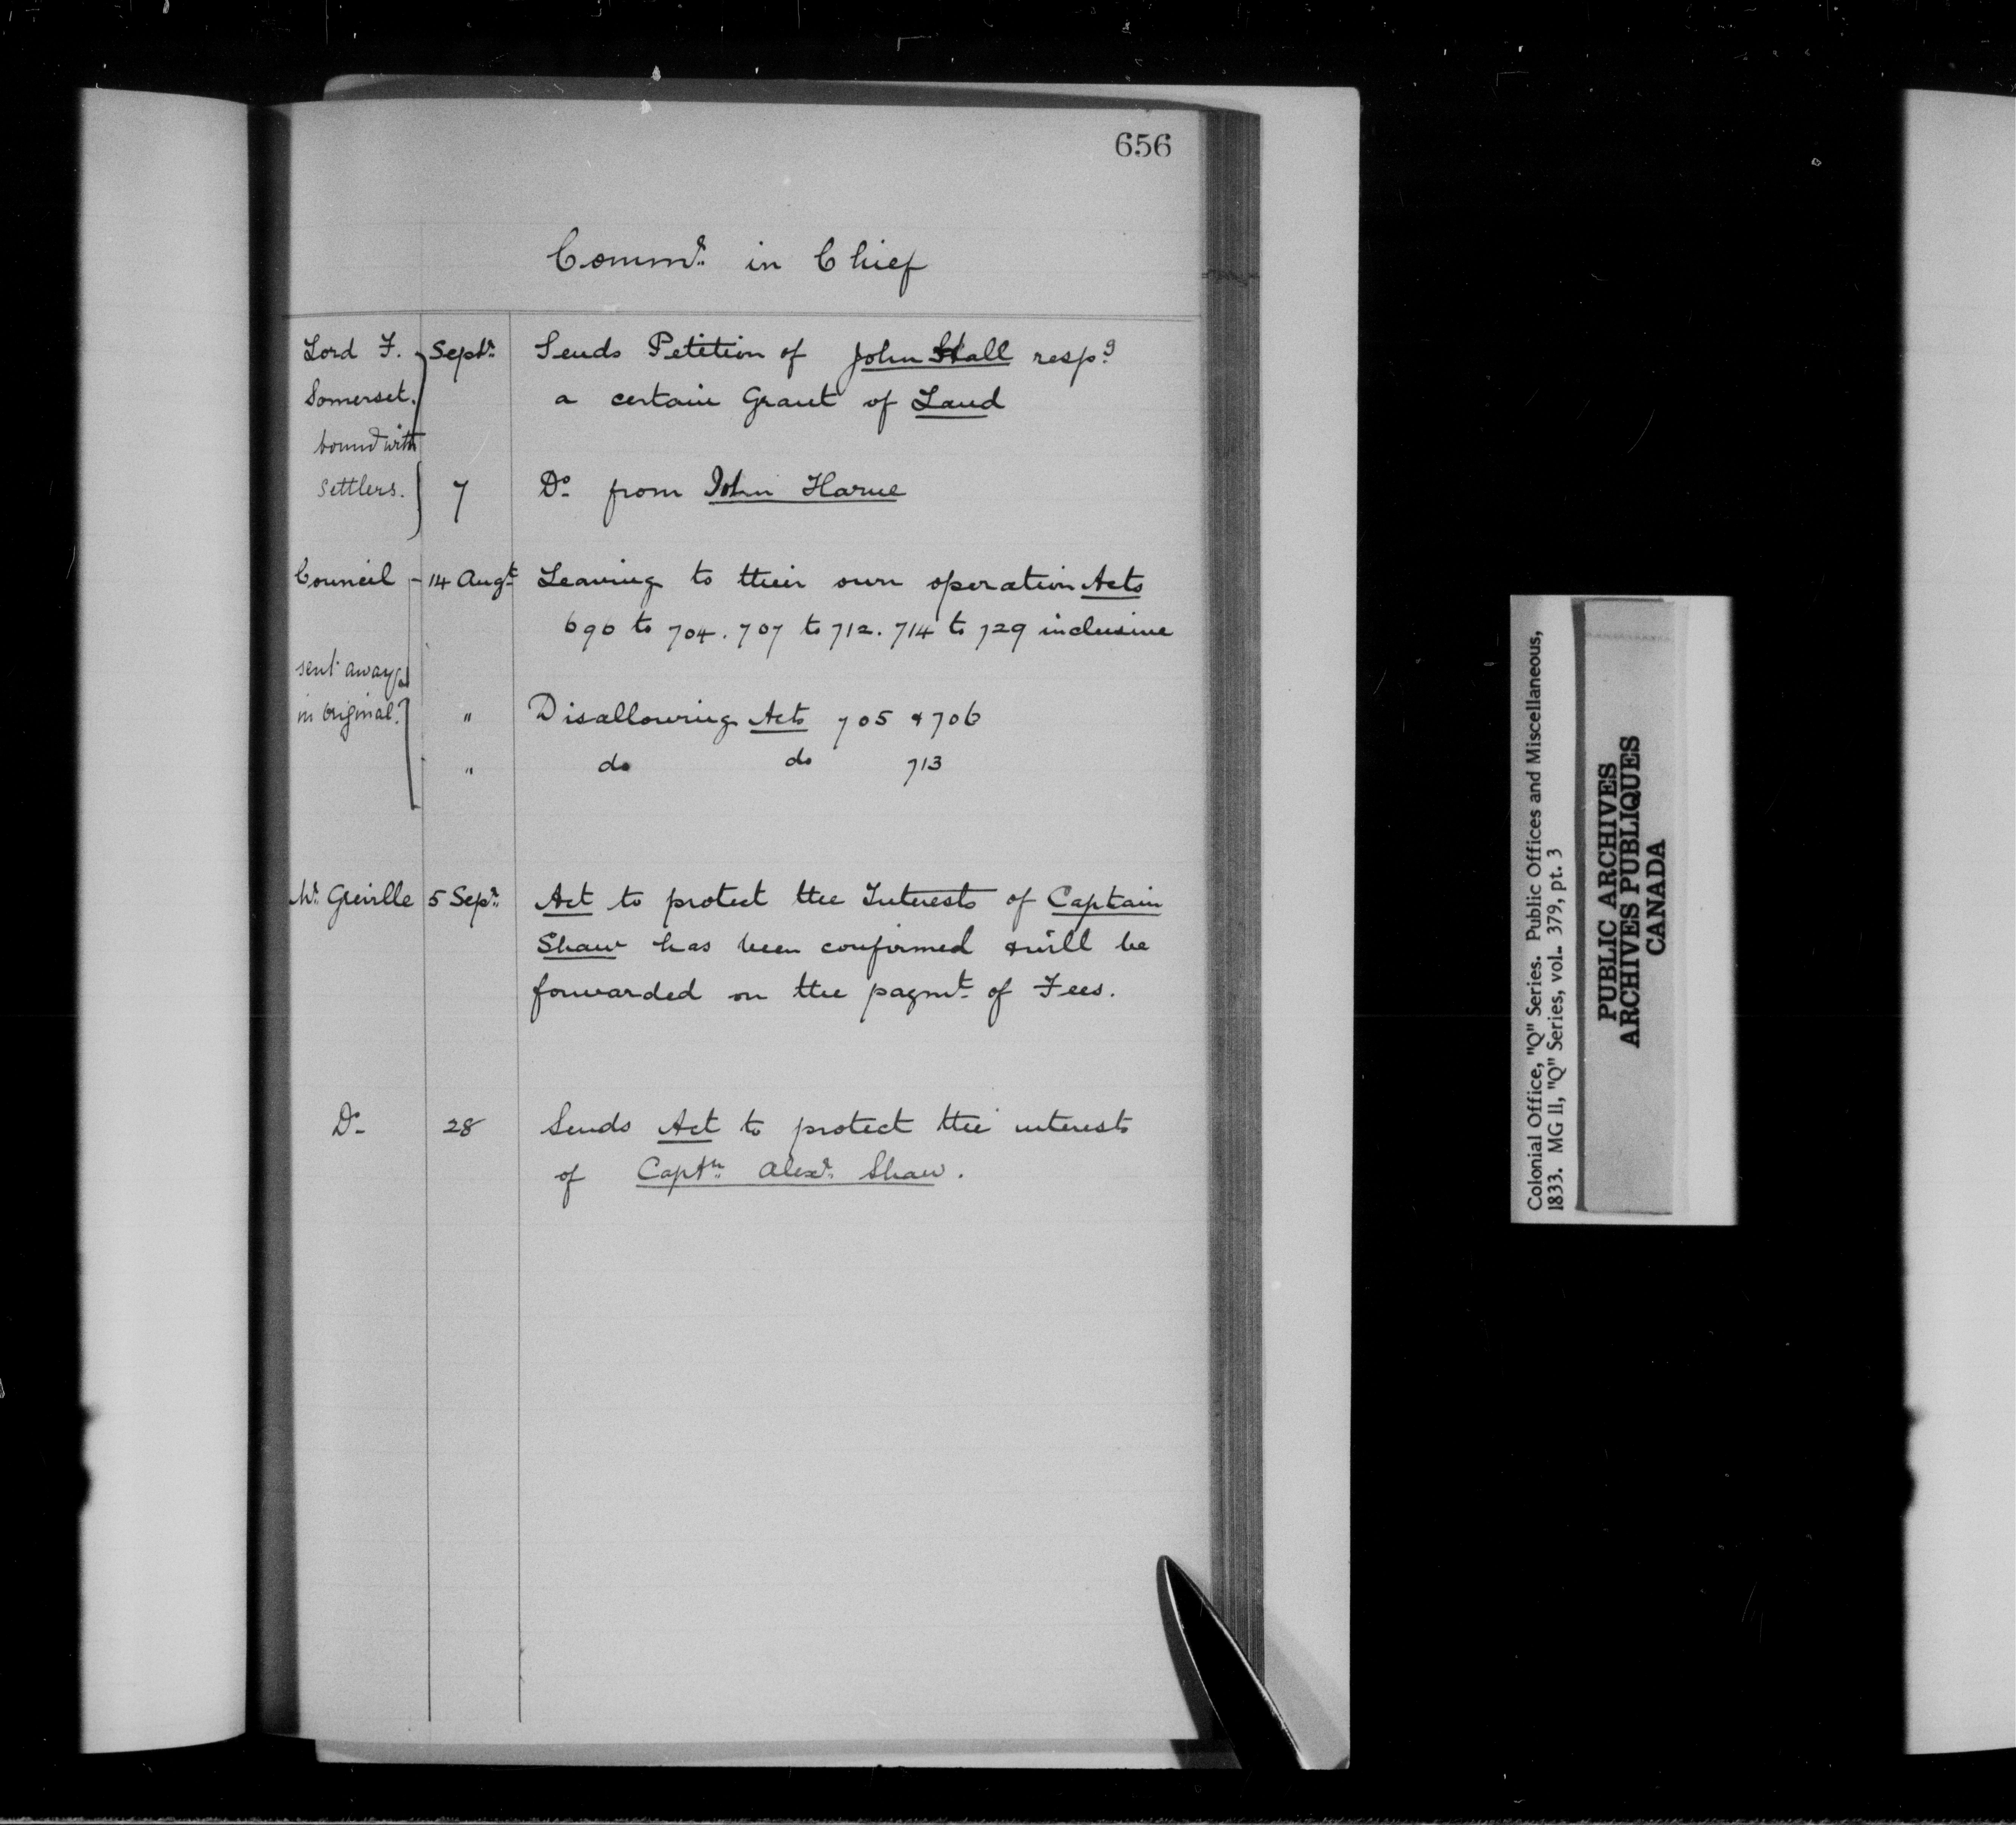 656
Commr. in Chief
Lord F. Septr. Sends Petition of John Hall respg
Somerset. a certain Grant of Land
bound with
settlers. 7 Do. from John Harue
Council - 14 Augt. Leaving to their own operation Acts
696 to 704. 707 to 712. 714 to 729 inclusive
sent away
in original. " Disallowing Acts 705 & 706
" do do 713
Mr. Greville 5 Sepr. Act to protect the Interests of Captain
Shaw has been confirmed & will be
forwarded on the paymt. of Fees.
Do. 28 Sends Act to protect the interests
of Captn. Alexr. Shaw.
Colonial Office, "Q" Series. Public Offices and Miscellaneous,
1833. MG 11, "Q" Series, vol. 379, pt. 3
PUBLIC ARCHIVES
ARCHIVES PUBLIQUES
CANADA